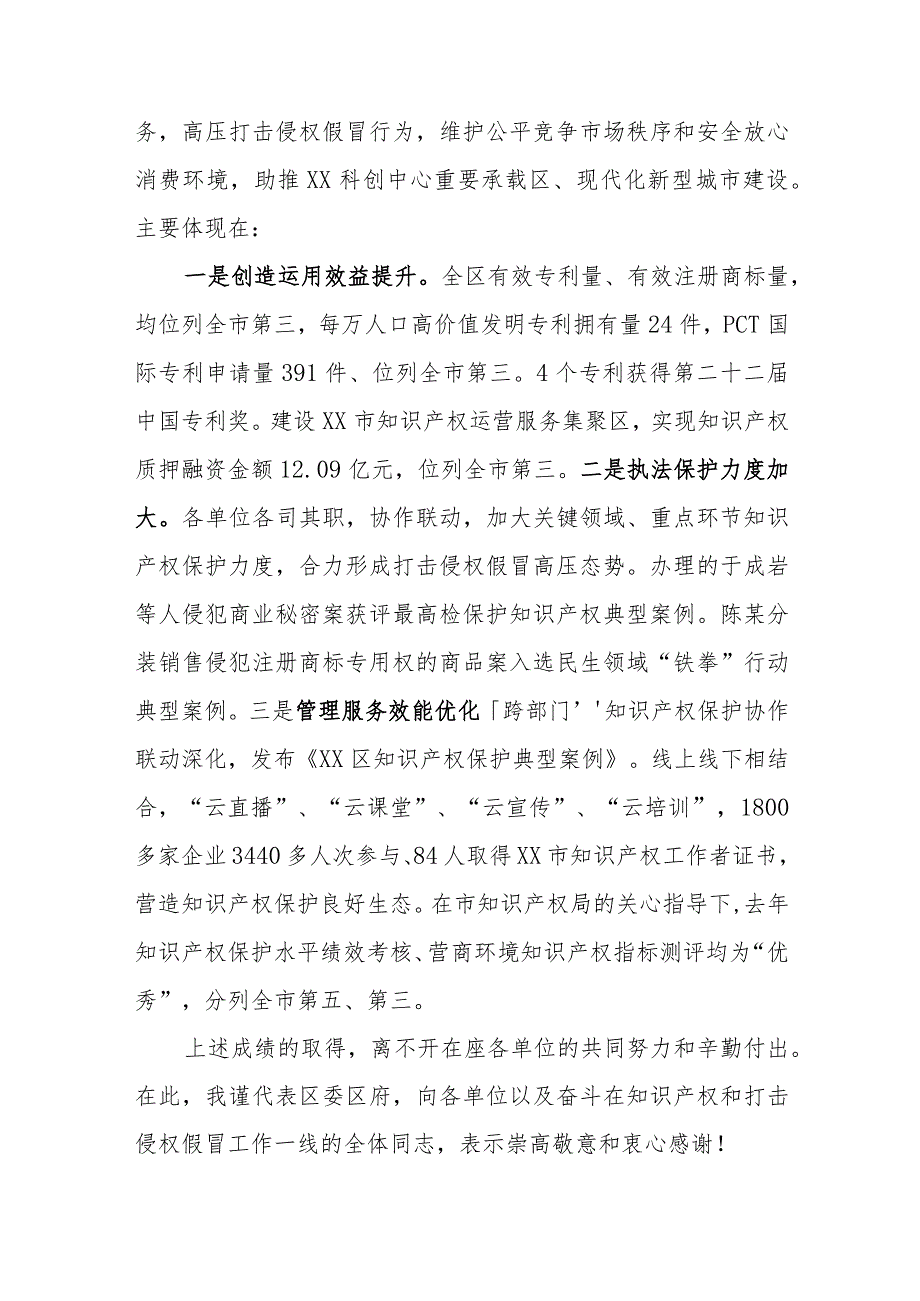 务，高压打击侵权假冒行为，维护公平竞争市场秩序和安全放心
消费环境，助推XX科创中心重要承载区、现代化新型城市建设。
主要体现在：
一是创造运用效益提升。全区有效专利量、有效注册商标量，
均位列全市第三，每万人口高价值发明专利拥有量24件，PCT国
际专利申请量391件、位列全市第三。4个专利获得第二十二届
中国专利奖。建设XX市知识产权运营服务集聚区，实现知识产权
质押融资金额12.09亿元，位列全市第三。二是执法保护力度加
大。各单位各司其职，协作联动，加大关键领域、重点环节知识
产权保护力度，合力形成打击侵权假冒高压态势。办理的于成岩
等人侵犯商业秘密案获评最高检保护知识产权典型案例。陈某分
装销售侵犯注册商标专用权的商品案入选民生领域“铁拳”行动
典型案例。三是管理服务效能优化「跨部门’'知识产权保护协作
联动深化，发布《XX区知识产权保护典型案例》。线上线下相结
合，“云直播”、“云课堂”、“云宣传”、“云培训”，1800
多家企业3440多人次参与、84人取得XX市知识产权工作者证书，
营造知识产权保护良好生态。在市知识产权局的关心指导下,去年
知识产权保护水平绩效考核、营商环境知识产权指标测评均为“优
秀”，分列全市第五、第三。
上述成绩的取得，离不开在座各单位的共同努力和辛勤付出。
在此，我谨代表区委区府，向各单位以及奋斗在知识产权和打击
侵权假冒工作一线的全体同志，表示崇高敬意和衷心感谢！